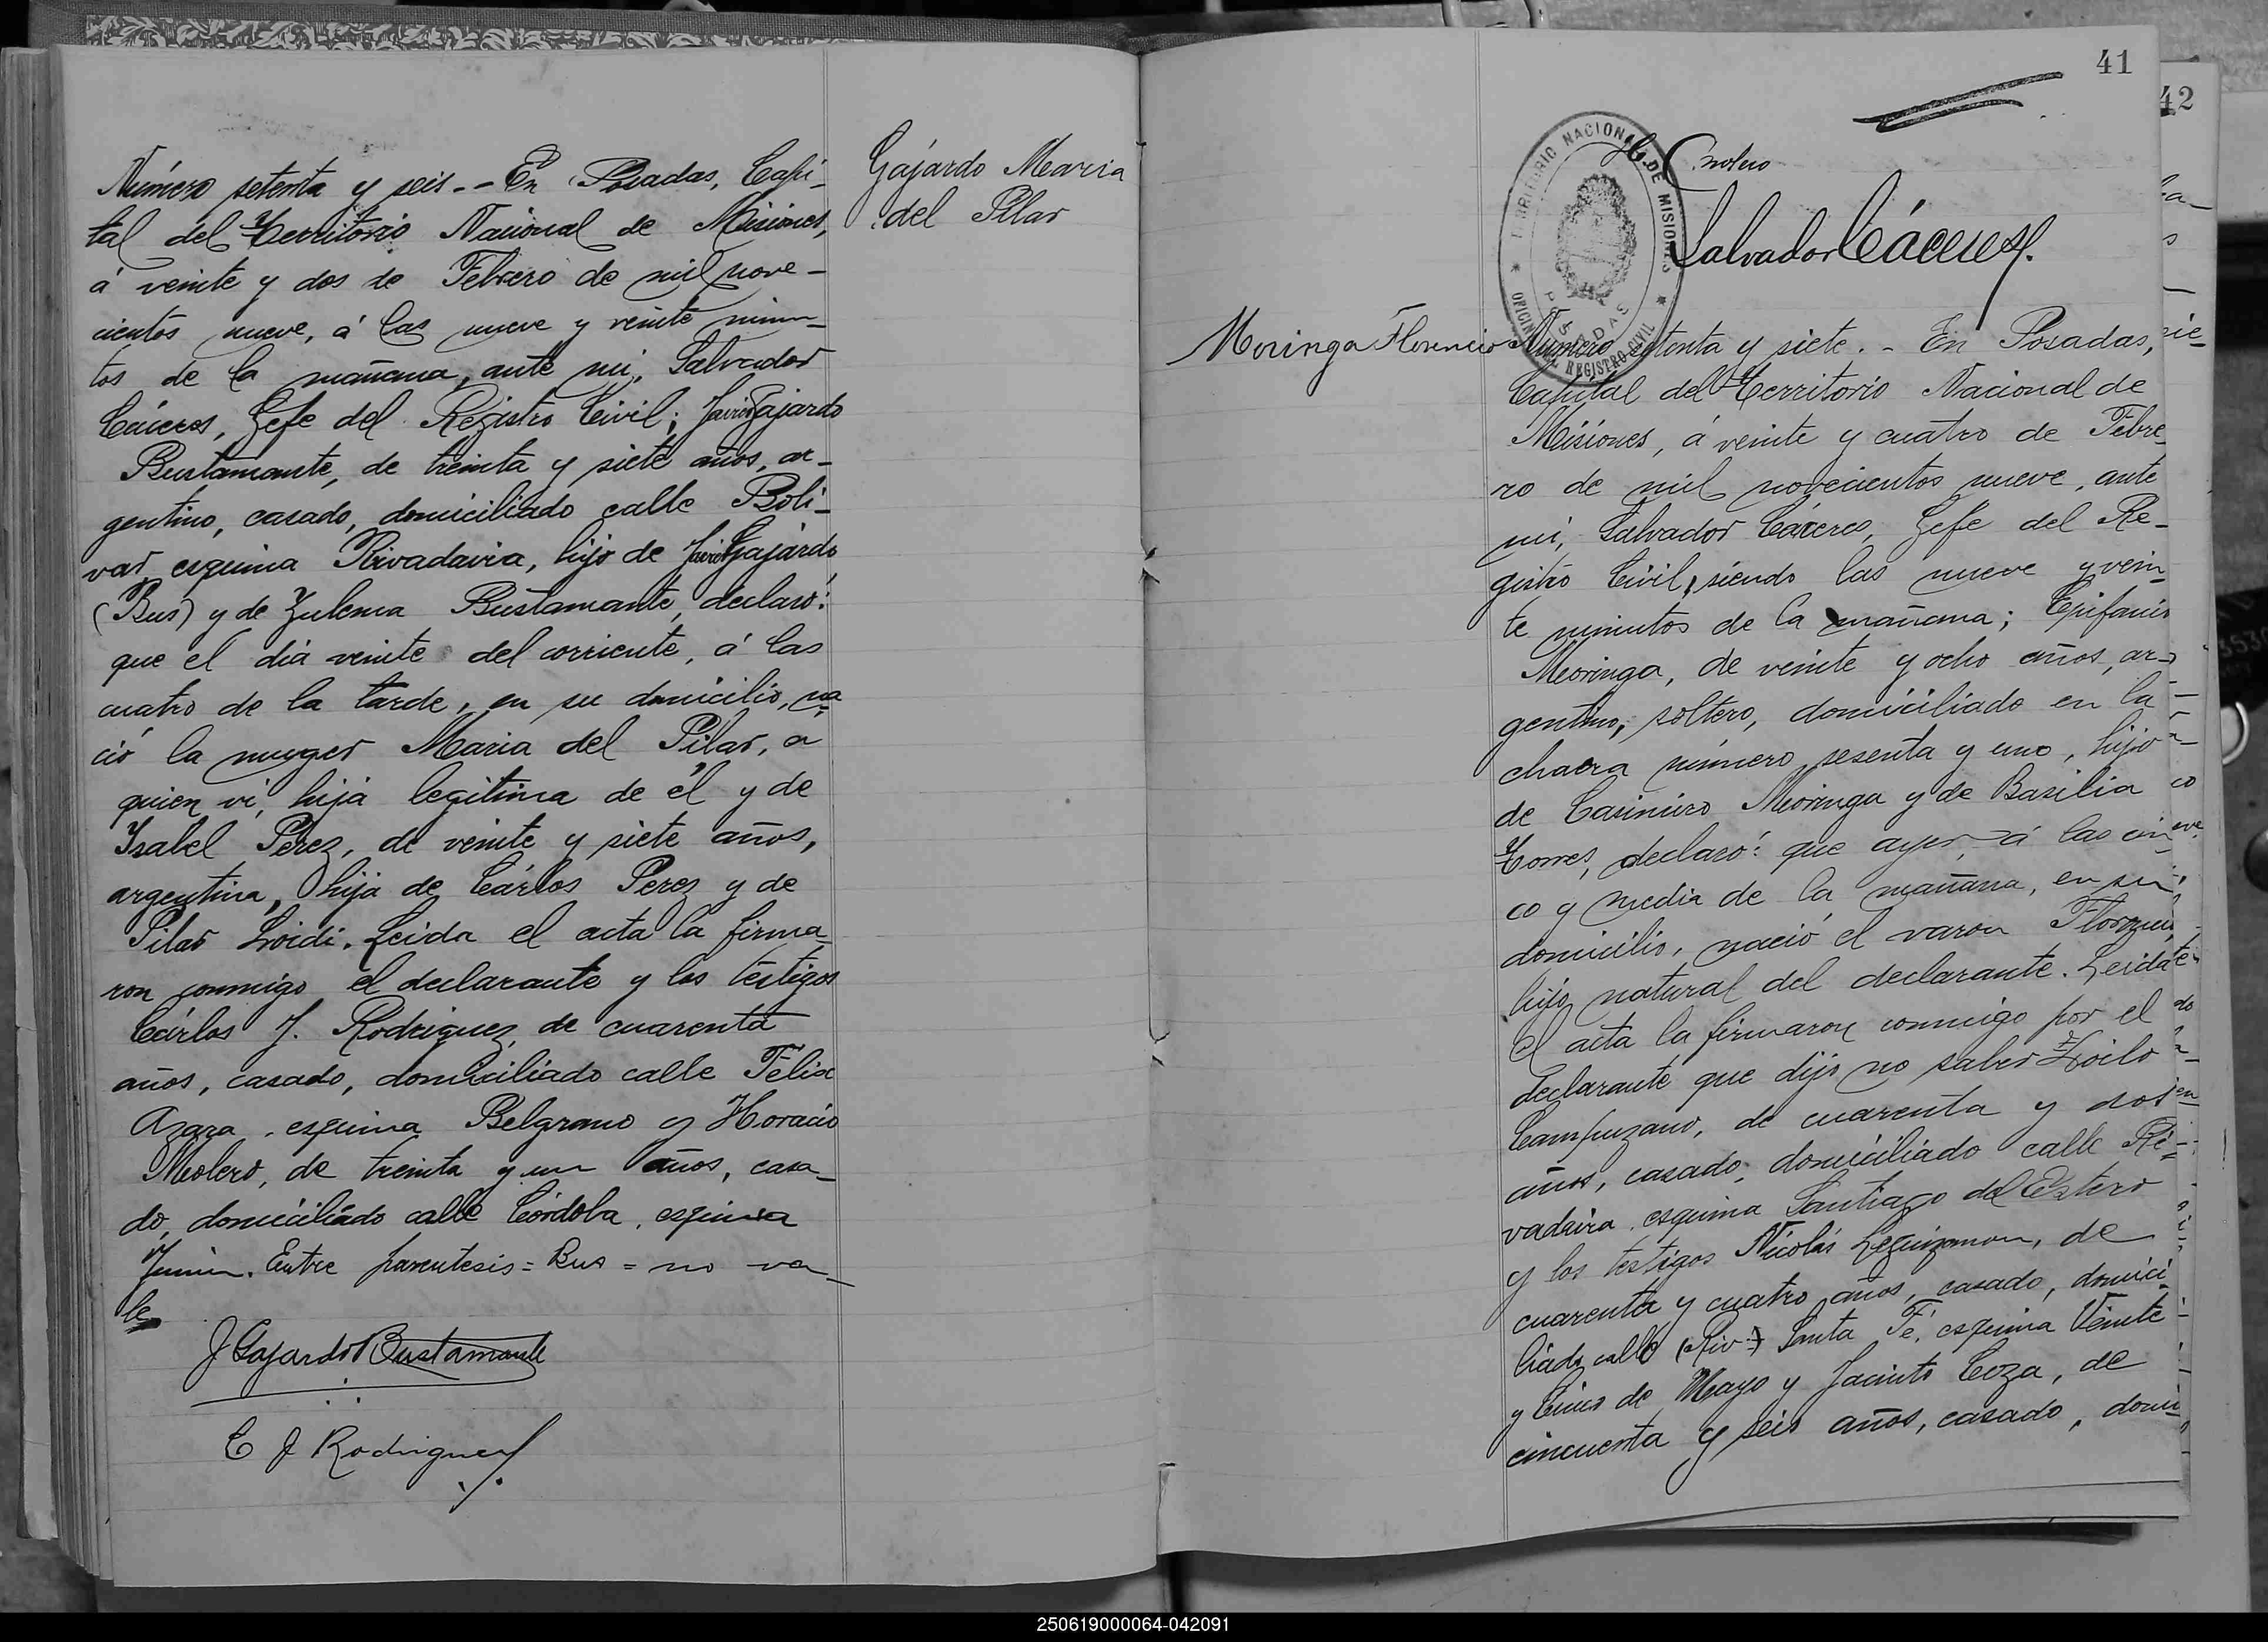 Número setenta y seis.-- En Posadas, Capi-
tal del Territorio Nacional de Misiones,
á veinte y dos de Febrero de mil nove-
cientos nueve, á las nueve y veinte minu-
tos de la mañana, ante mi, Salvador
Cáceres, Gefe del Registro Civil; Javier Gajardo
Bustamante, de treinta y siete años, ar-
gentino, casado, domiciliado calle Boli-
var esquina Rivadavia, hijo de Javier Gajardo
(Bus) y de Zulema Bustamante, declaró:
que el dia veinte del corriente, á las
cuatro de la tarde, en su domicilio, na
ció la muger Maria del Pilar, a
quien vi, hija legitima de él y de
Ysabel Perez, de veinte y siete años,
argentina, hija de Cárlos Perez y de
Pilar Loidi. Leida el acta la firma-
ron conmigo el declarante y los testigos
Cárlos J. Rodriguez, de cuarenta
años, casado, domiciliado calle Felix
Azara, esquina Belgrano y Horacio
Molero, de treinta y un años, casa-
do, domiciliado calle Córdoba, esquina
Junin. Entre parentesis = Bus = no va-
le
J Gajardo Bustamante
C J Rodriguez
Gajardo Maria
del Pilar
41
42
TERRITORIO NACIONAL DE MISIONES
POSADAS
OFICINA DEL REGISTRO CIVIL
H. Molero
Salvador Cáceres
Moringa Florencio
Número setenta y siete.- En Posadas,
Capital del Territorio Nacional de
Misiones, á veinte y cuatro de Febre-
ro de mil novecientos nueve, ante
mi, Salvador Cáceres, Gefe del Re-
gistro Civil, siendo las nueve y vein-
te minutos de la mañana; Epifanio
Moringa, de veinte y ocho años, ar-
gentino, soltero, domiciliado en la
chacra número sesenta y uno, hijo
de Casimiro Moringa y de Basilia
Torres, declaró: que ayer, á las cin-
co y media de la mañana, en su
domicilio, nació el varon Florencio,
hijo natural del declarante. Leida
el acta la firmaron conmigo por el
declarante que dijo no saber Zoilo
Campuzano, de cuarenta y dos
años, casado, domiciliado calle Ri-
vadavia esquina Santiago del Estero
y los testigos Nicolás Leguizamon, de
cuarenta y cuatro años, casado, domici-
liado calle (Riv-) Santa Fé, esquina Veinte
y Cinco de Mayo y Jacinto Coza, de
cincuenta y seis años, casado, domi-
250619000064-042091